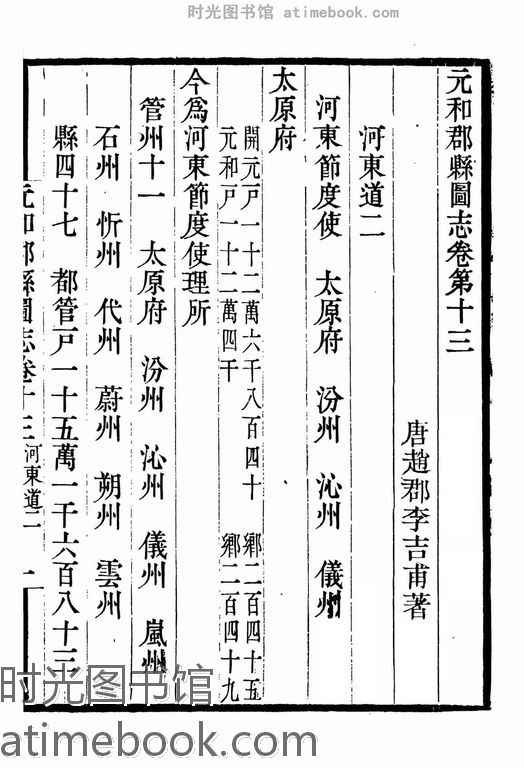 时光图书馆 atimebook.com
元和郡縣圖志卷第十三
唐趙郡李吉甫著
河東道二
河東節度使 太原府 汾州 沁州 儀州
太原府
開元戸一十二萬六千八百四十 鄉二百四十五
元和戸一十二萬四千 鄉二百四十九
今爲河東節度使理所
管州十一 太原府 汾州 沁州 儀州 嵐州
石州 忻州 代州 蔚州 朔州 雲州
縣四十七 都管戸一十五萬一千六百八十三
元和郡縣圖志卷十三 河東道二 一
时光图书馆
atimebook.com